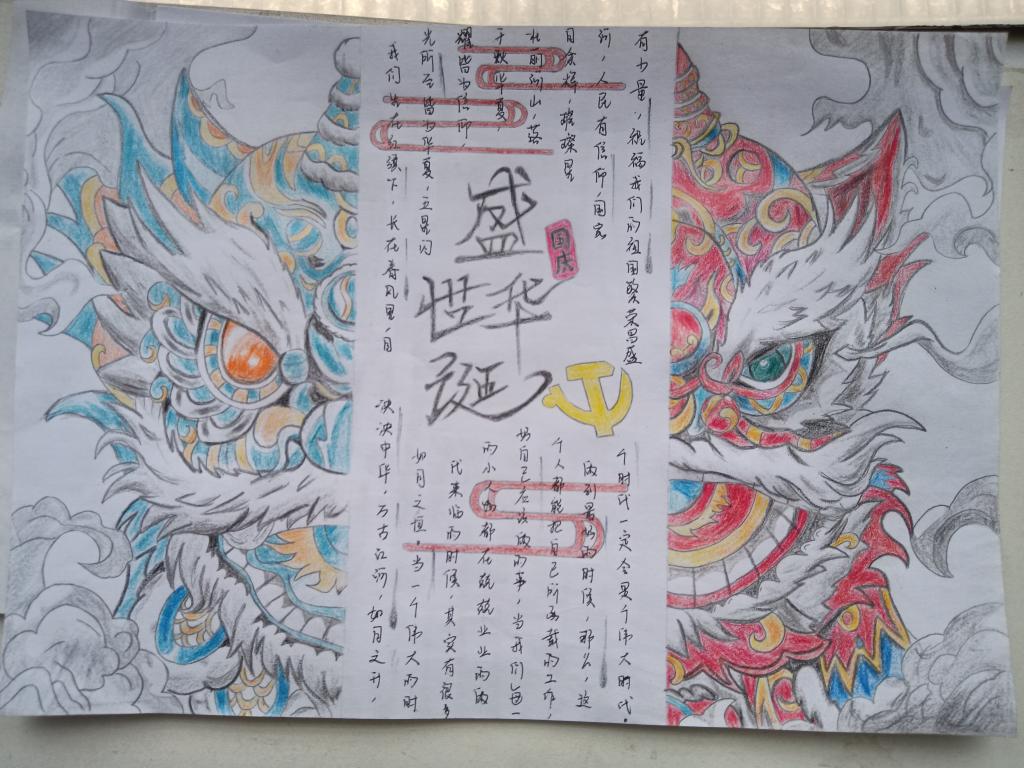 盛
世华
诞
国庆
我们生在红旗下，长在春风里，目
光所至皆为华夏，五星闪
耀皆为信仰，
于数华夏，
壮丽河山，落
日余辉，璀璨星
河，人民有信仰，国家
有力量，祝福我们的祖国繁荣昌盛
泱泱中华，万古江河，如日之升，
如月之恒。当一个伟大的时
代来临的时候，其实有很多
的小人物都在兢兢业业的做
好自己应该做的事，当我们每一
个人都能把自己所承载的工作，
做到最好的时候，那么，这
个时代一定会是个伟大时代。